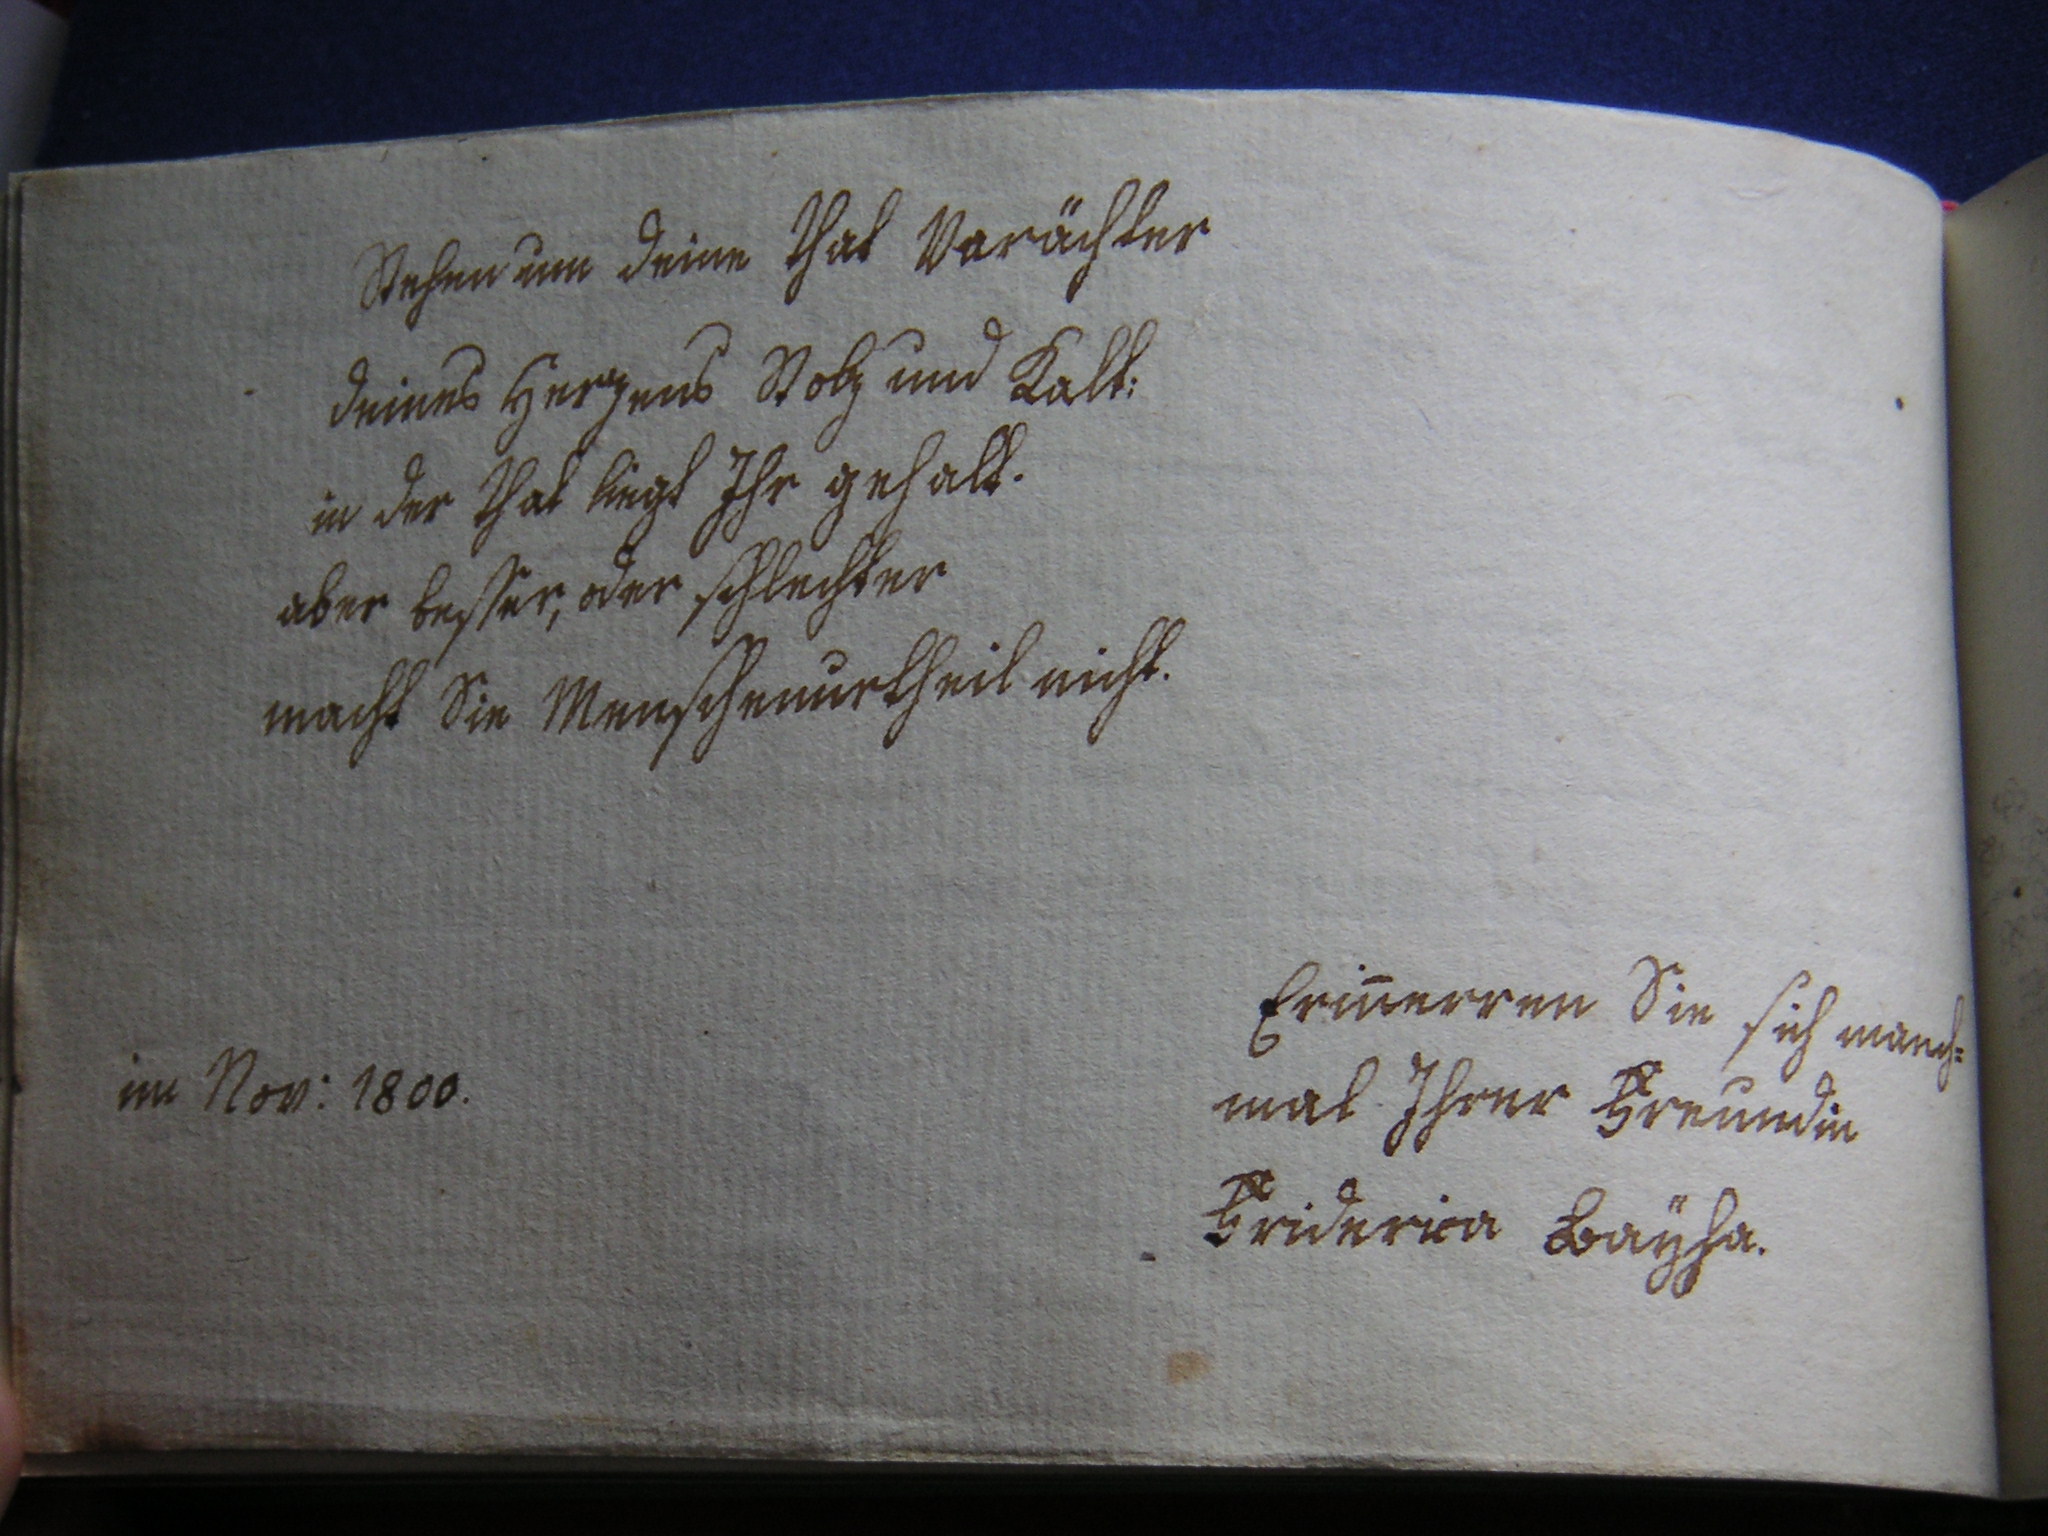 Stehen um deine That Verächter
deines Herzens Stolz und Kalt:
in der That liegt Ihr gehalt.
aber besser, oder schlechter
macht Sie Menschenurtheil nicht.
Erin̅erren Sie sich manch=
mal Ihrer Freundin
im Nov: 1800.
Friderica Baÿha.